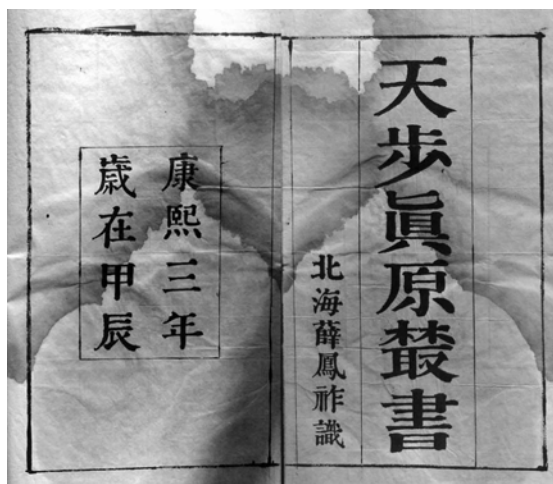 天步眞原叢書
北海薛鳳祚識
康熙三年
歳在甲辰